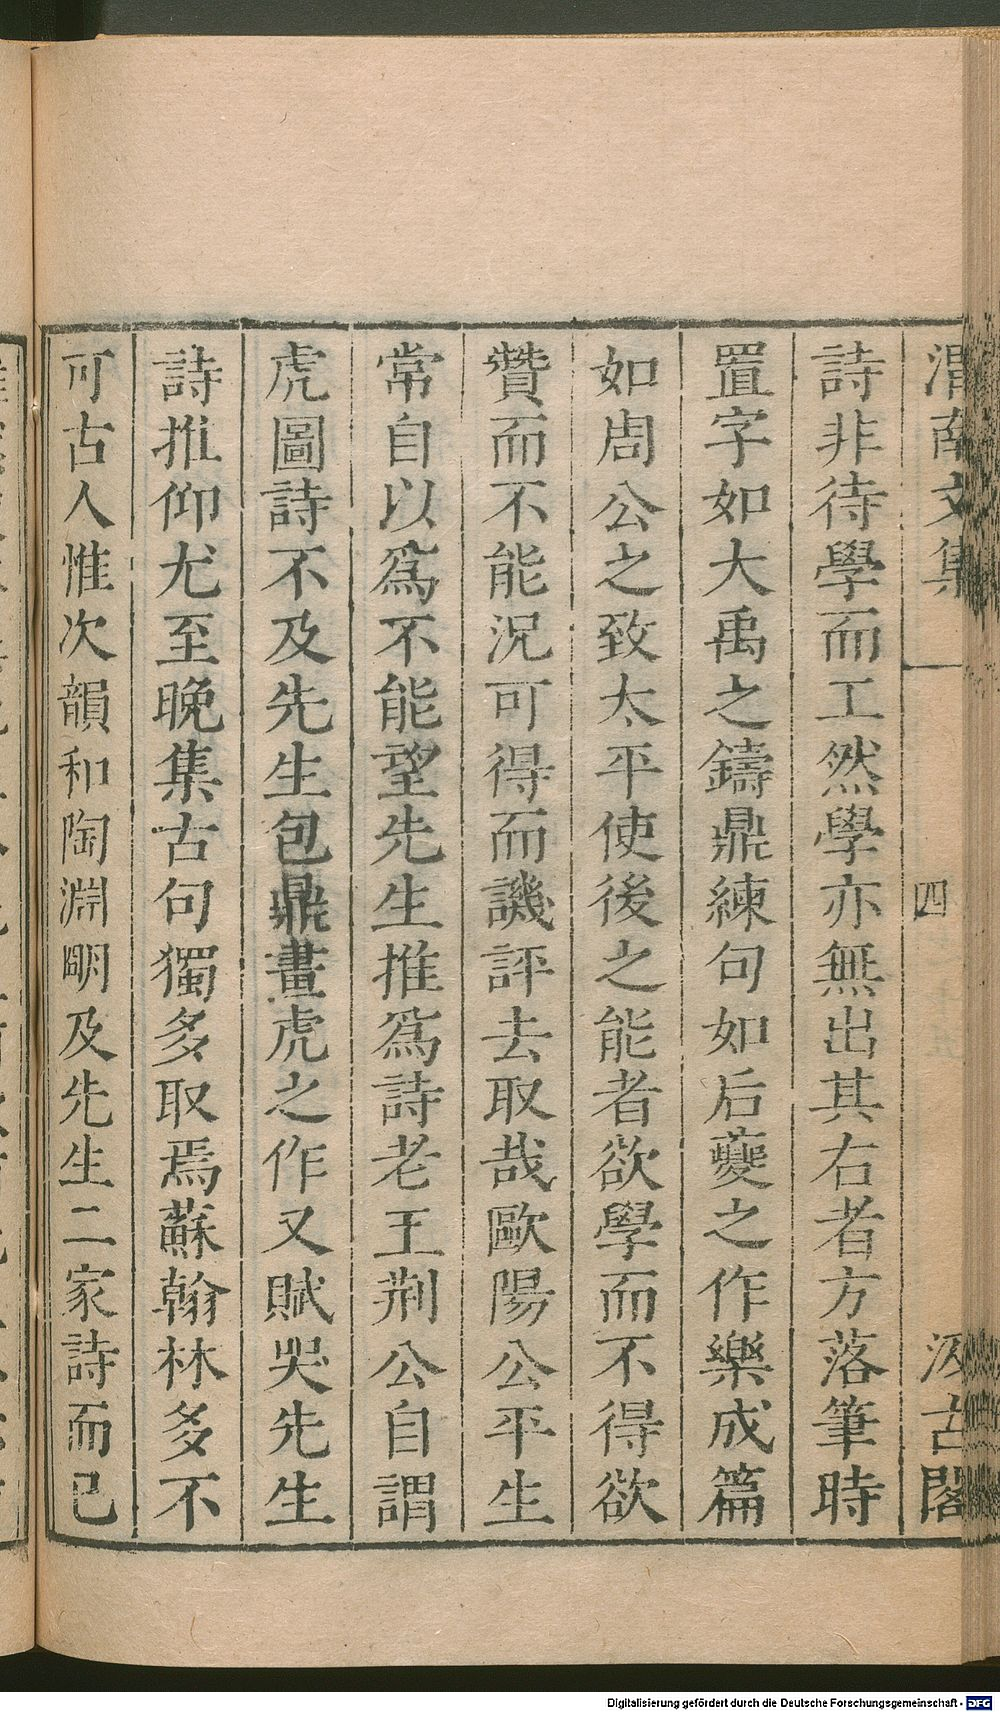 渭南文集 四 汲古閣
詩非待學而工然學亦無出其右者方落筆時
置字如大禹之鑄鼎練句如后夔之作樂成篇
如周公之致太平使後之能者欲學而不得欲
贊而不能況可得而譏評去取哉歐陽公平生
常自以爲不能望先生推爲詩老王荆公自謂
虎圖詩不及先生包鼎畫虎之作又賦哭先生
詩推仰尤至晚集古句獨多取焉蘇翰林多不
可古人惟次韻和陶淵明及先生二家詩而已
Digitalisierung gefördert durch die Deutsche Forschungsgemeinschaft - DFG